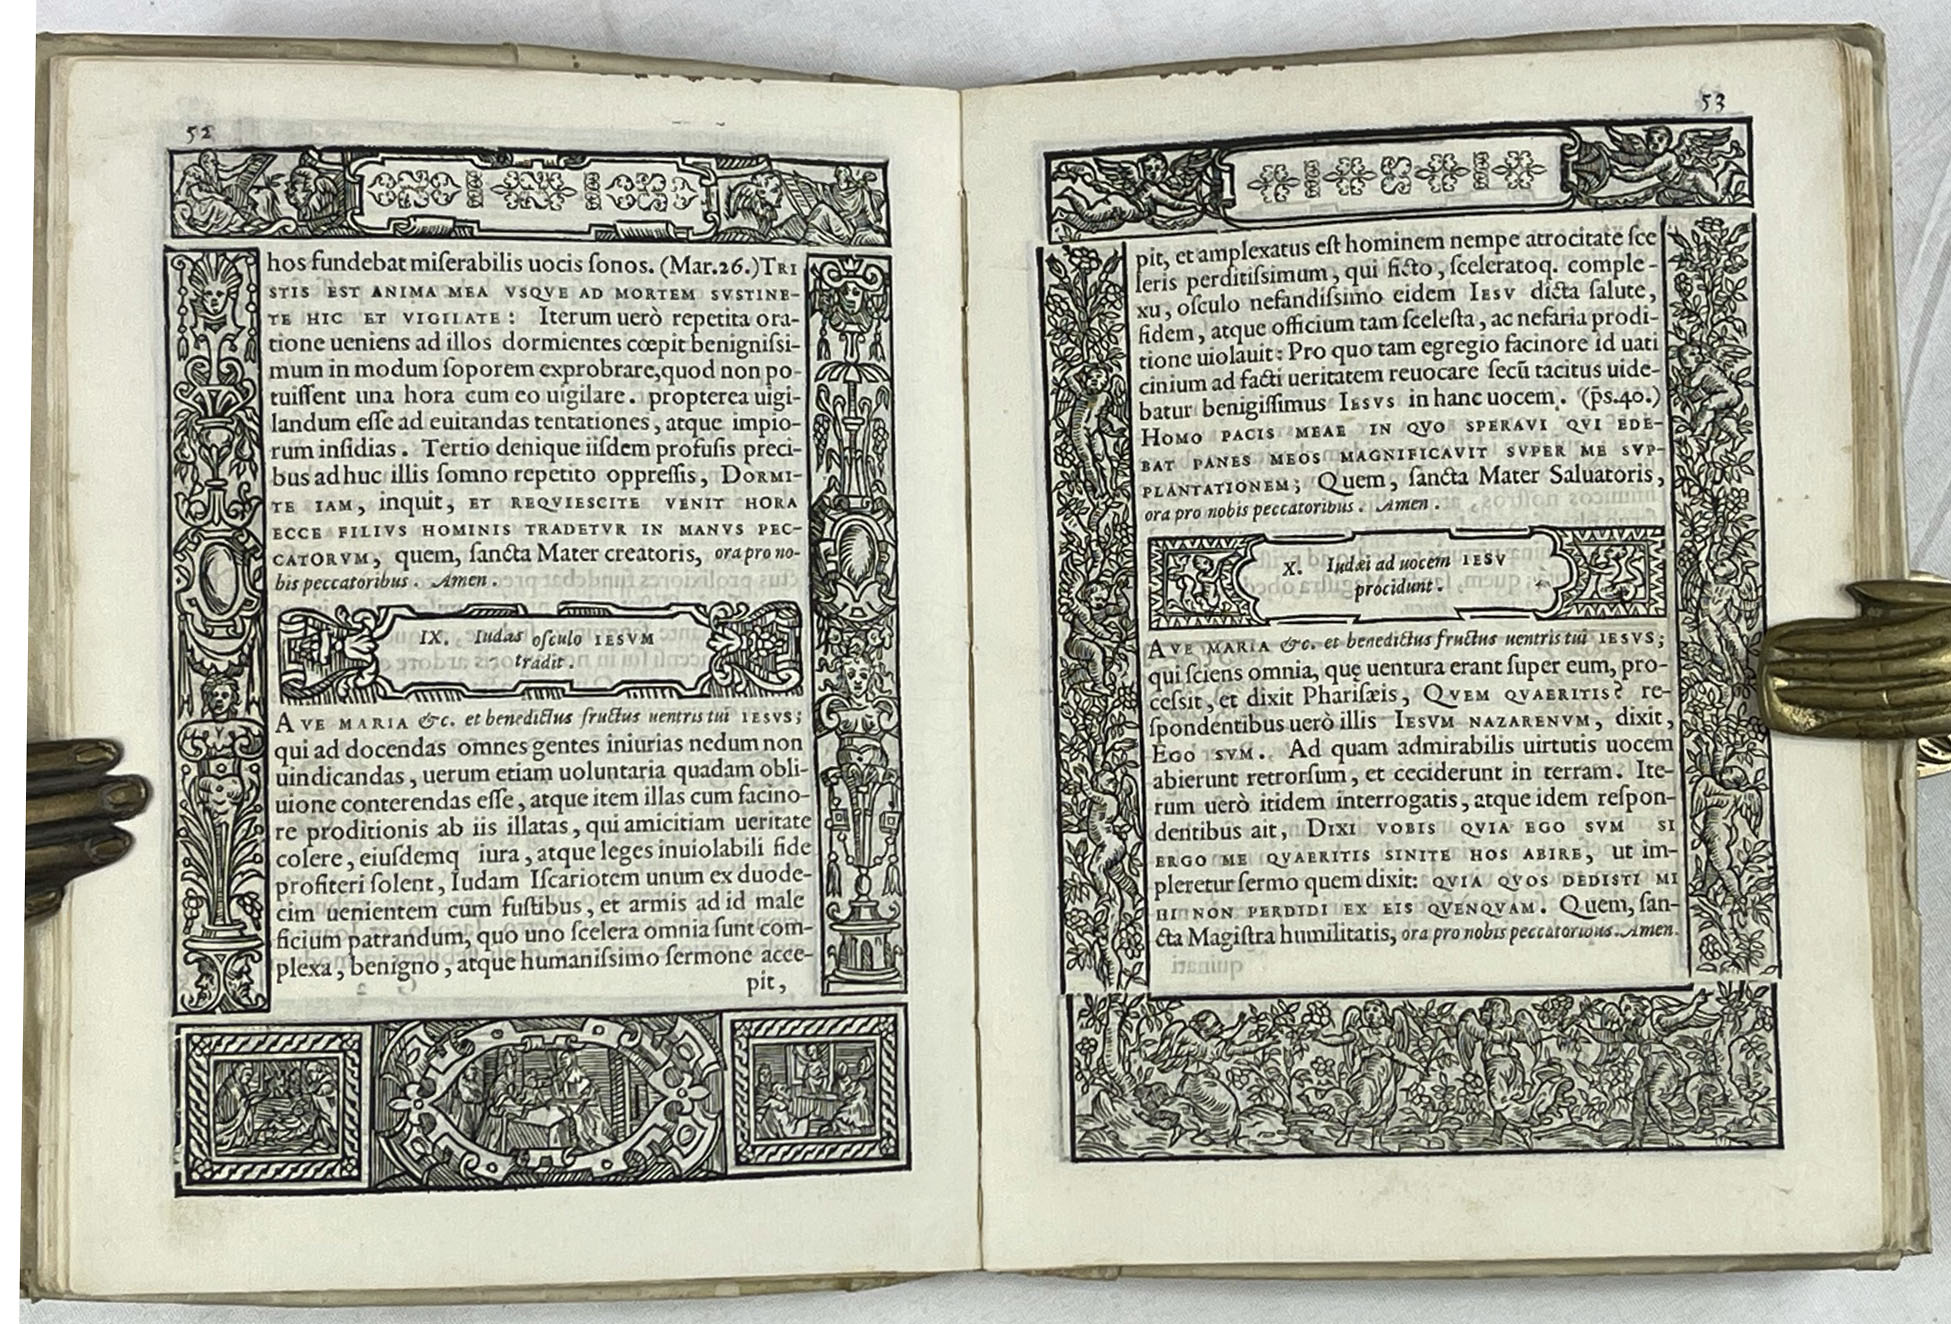 52
hos fundebat miserabilis uocis sonos. (Mar.26.) TRI
STIS EST ANIMA MEA VSQVE AD MORTEM SVSTINE-
TE HIC ET VIGILATE: Iterum uerò repetita ora-
tione ueniens ad illos dormientes cœpit benignissi-
mum in modum soporem exprobrare, quod non po-
tuissent una hora cum eo uigilare. propterea uigi-
landum esse ad euitandas tentationes, atque impio-
rum insidias. Tertio denique iisdem profusis preci-
bus ad huc illis somno repetito oppressis, DORMI-
TE IAM, inquit, ET REQVIESCITE VENIT HORA
ECCE FILIVS HOMINIS TRADETVR IN MANVS PEC-
CATORVM, quem, sancta Mater creatoris, ora pro no-
bis peccatoribus. Amen.
IX. Iudas osculo IESVM
tradit.
AVE MARIA &c. et benedictus fructus uentris tui IESVS;
qui ad docendas omnes gentes iniurias nedum non
uindicandas, uerum etiam uoluntaria quadam obli-
uione conterendas esse, atque item illas cum facino-
re proditionis ab iis illatas, qui amicitiam ueritate
colere, eiusdemq iura, atque leges inuiolabili fide
profiteri solent, Iudam Iscariotem unum ex duode-
cim uenientem cum fustibus, et armis ad id male
ficium patrandum, quo uno scelera omnia sunt com-
plexa, benigno, atque humanissimo sermone acce-
pit,
53
pit, et amplexatus est hominem nempe atrocitate sce
leris perditissimum, qui ficto, sceleratoq. comple-
xu, osculo nefandissimo eidem IESV dicta salute,
fidem, atque officium tam scelesta, ac nefaria prodi-
tione uiolauit: Pro quo tam egregio facinore id uati
cinium ad facti ueritatem reuocare secũ tacitus uide-
batur benigissimus IESVS in hanc uocem. (p̄s.40.)
HOMO PACIS MEAE IN QVO SPERAVI QVI EDE-
BAT PANES MEOS MAGNIFICAVIT SVPER ME SVP-
PLANTATIONEM; Quem, sancta Mater Saluatoris,
ora pro nobis peccatoribus. Amen.
X. Iudæi ad uocem IESV
procidunt.
AVE MARIA &c. et benedictus fructus uentris tui IESVS;
qui sciens omnia, quę uentura erant super eum, pro-
cessit, et dixit Pharisæis, QVEM QVAERITIS? re-
spondentibus uerò illis IESVM NAZARENVM, dixit,
EGO SVM. Ad quam admirabilis uirtutis uocem
abierunt retrorsum, et ceciderunt in terram. Ite-
rum uerò itidem interrogatis, atque idem respon-
dentibus ait, DIXI VOBIS QVIA EGO SVM SI
ERGO ME QVAERITIS SINITE HOS ABIRE, ut im-
pleretur sermo quem dixit: QVIA QVOS DEDISTI MI
HI NON PERDIDI EX EIS QVENQVAM. Quem, san-
cta Magistra humilitatis, ora pro nobis peccatoribus. Amen.